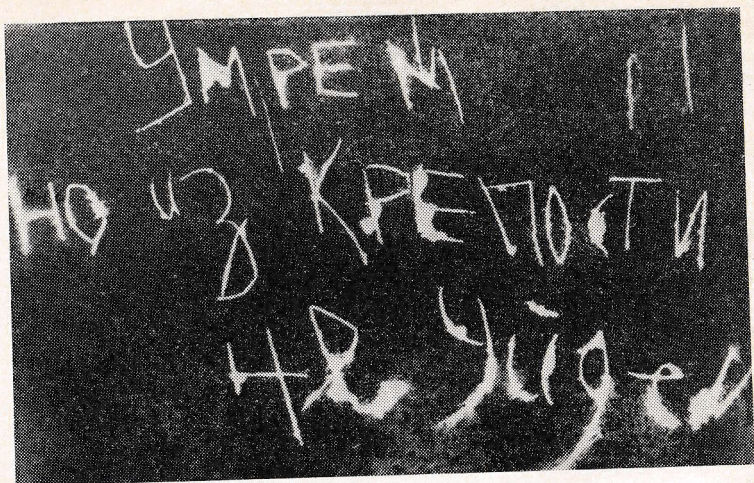 Умрем
но из крепости
не уйдем